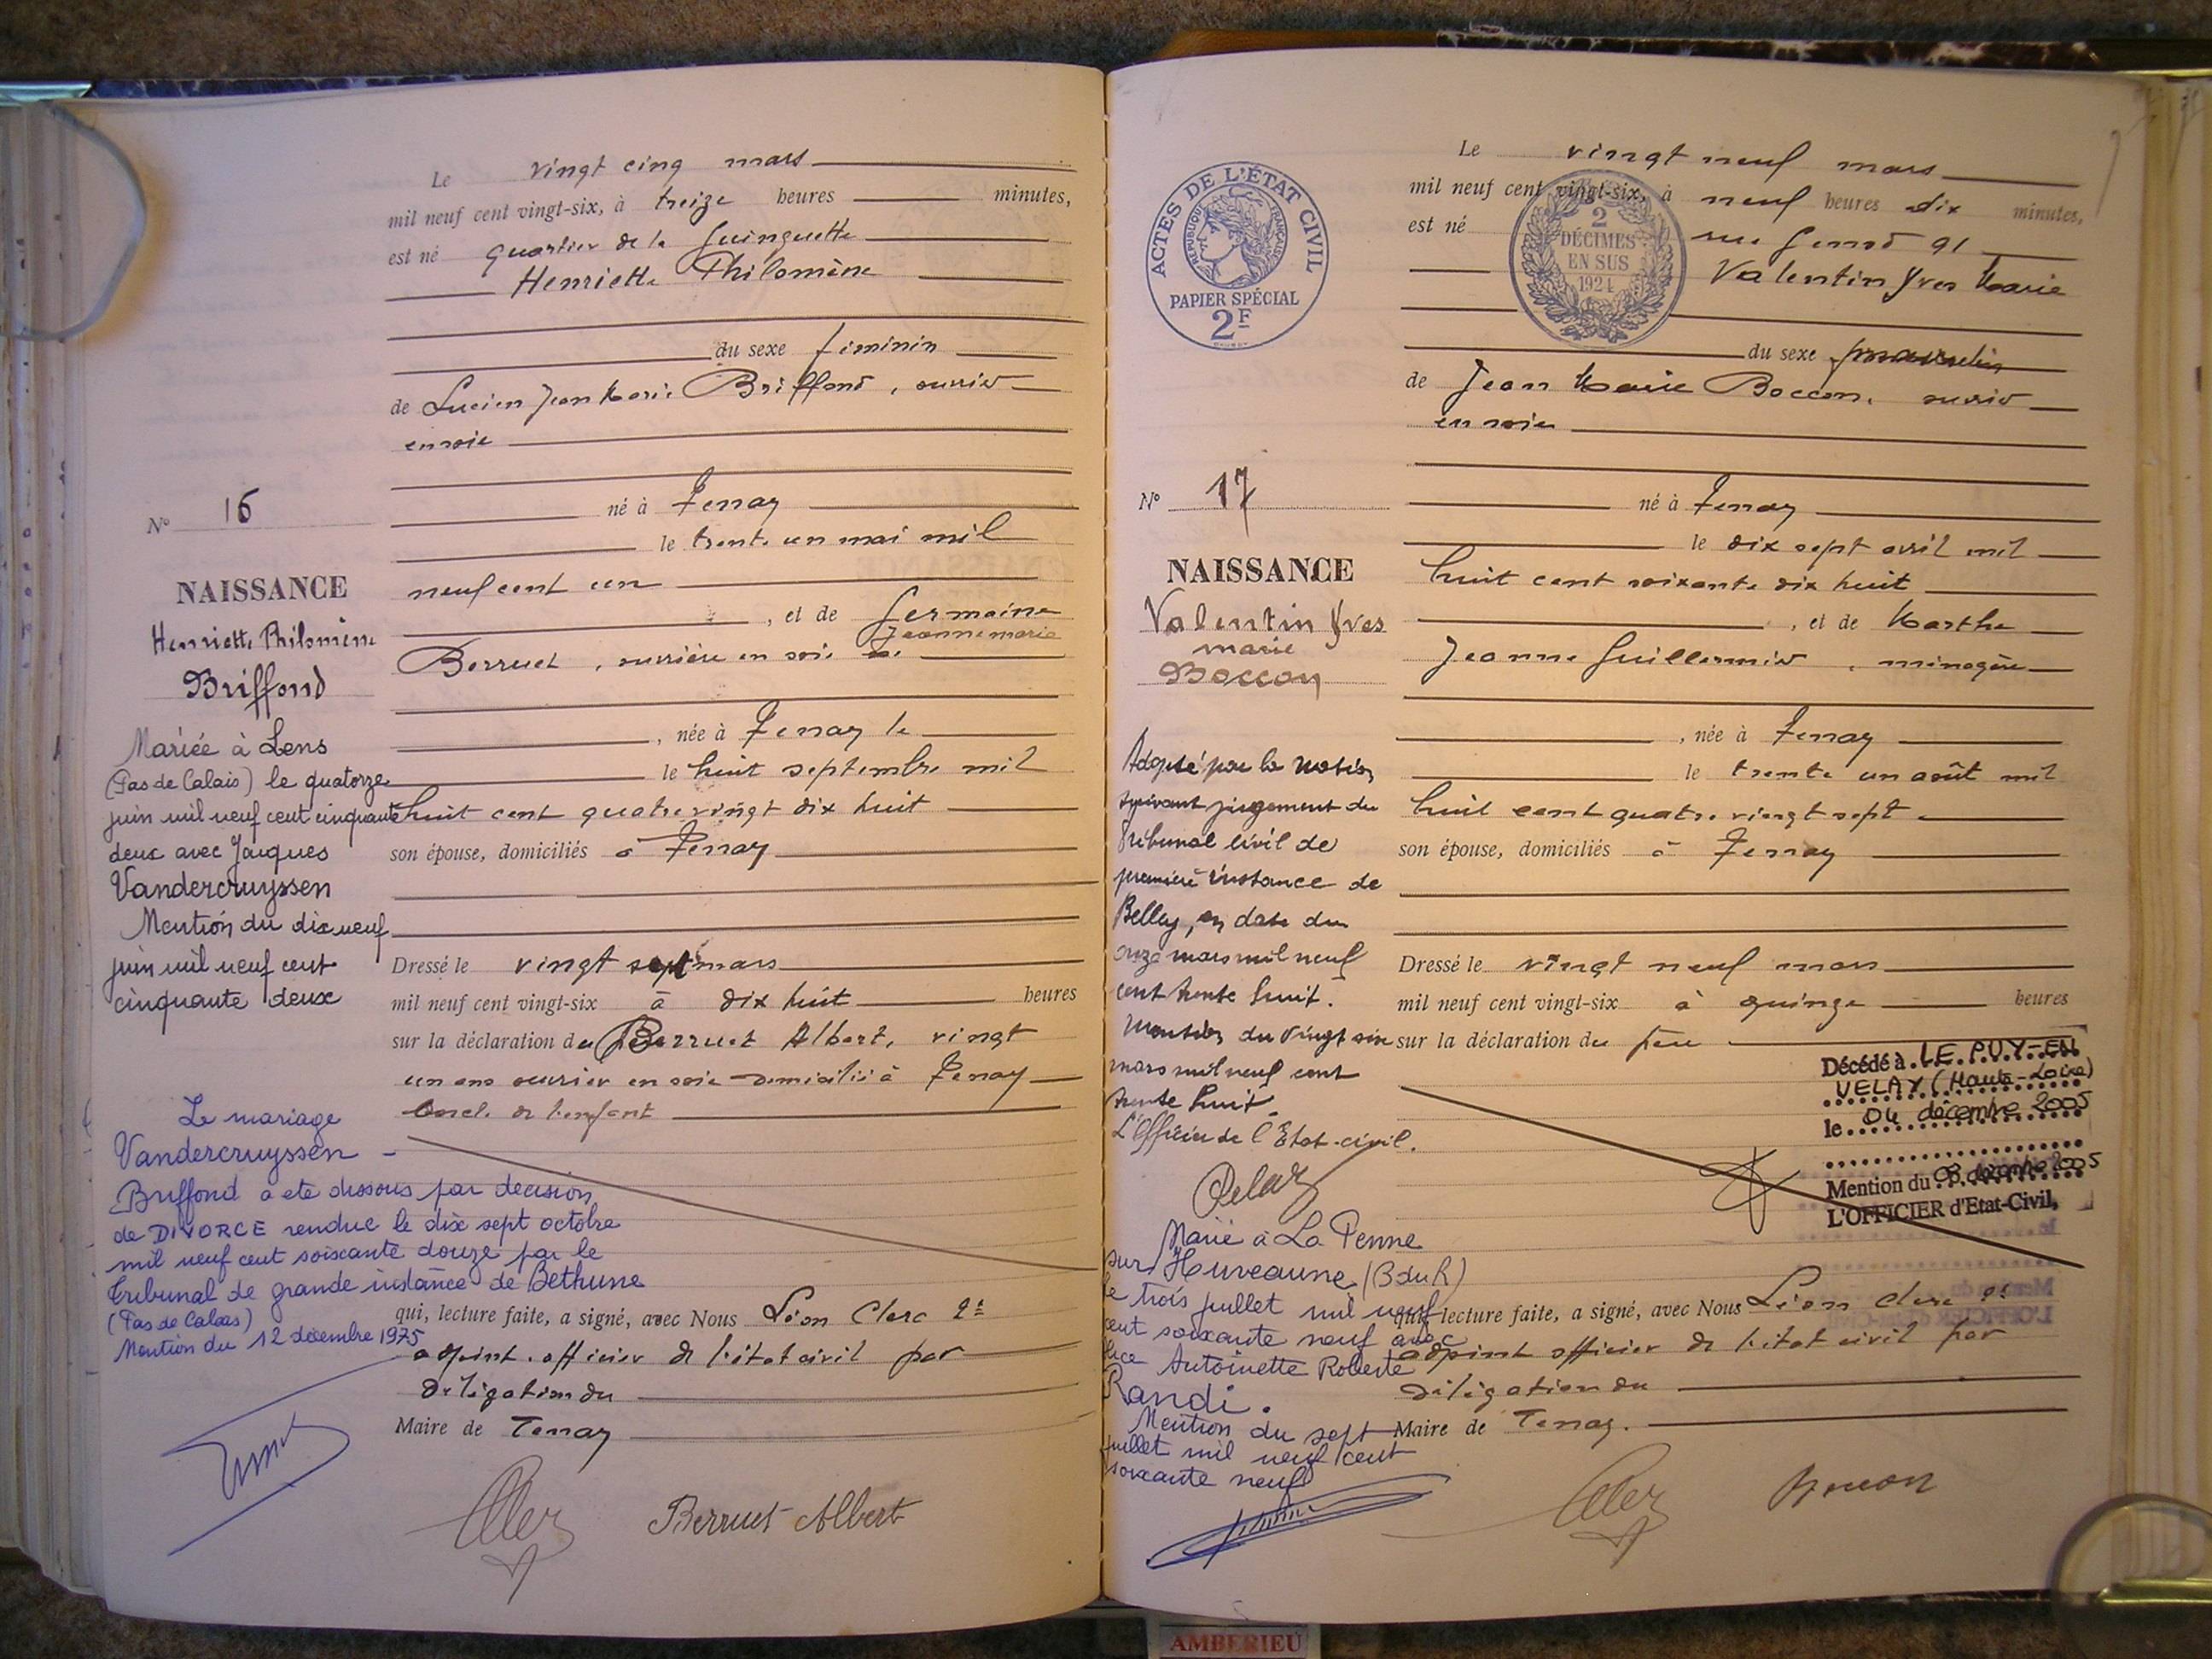 Le vingt cinq mars
mil neuf cent vingt-six, à treize heures minutes,
est né quartier de la Guinguette
Henriette Philomène
du sexe féminin
de Lucien Jean Marie Briffond, ouvrier
en soie
né à Tenay
le trente un mai mil
neuf cent un
, et de Germaine
Jeanne marie
Berruet, ouvrière en soie
née à Tenay le
le huit septembre mil
huit cent quatre vingt dix huit
son épouse, domiciliés à Tenay
Dressé le vingt sept mars
mil neuf cent vingt-six à dix huit heures
sur la déclaration de Berruet Albert, vingt
un ans ouvrier en soie domicilié à Tenay
oncle de l'enfant
qui, lecture faite, a signé, avec Nous Léon Clerc 2e
adjoint officier de l'état civil par
délégation du
Maire de Tenay
Berruet Albert
No 16
NAISSANCE
Henriette Philomène
Briffond
Mariée à Lens
(Pas de Calais) le quatorze
juin mil neuf cent cinquante
deux avec Jacques
Vandercruyssen
Mention du dix neuf
juin mil neuf cent
cinquante deux
Le mariage
Vandercruyssen -
Briffond a ete dissous par decision
de DIVORCE rendue le dix sept octobre
mil neuf cent soixante douze par le
tribunal de grande instance de Bethune
(Pas de Calais)
Mention du 12 décembre 1975
ACTES DE L'ÉTAT CIVIL
RÉPUBLIQUE FRANÇAISE
PAPIER SPÉCIAL
2F
2
DÉCIMES
EN SUS
1924
Le vingt neuf mars
mil neuf cent vingt-six, à neuf heures dix minutes,
est né rue 91
Valentin Yves Marie
du sexe masculin
de Jean Marie Boccon, ouvrier
en soie
né à Tenay
le dix sept avril mil
huit cent soixante dix huit
, et de Marthe
Jeanne Guillermier, ménagère
, née à Tenay
le trente un août mil
huit cent quatre vingt sept
son épouse, domiciliés à Tenay
Dressé le vingt neuf mars
mil neuf cent vingt-six à quinze heures
sur la déclaration du père
qui, lecture faite, a signé, avec Nous Léon Clerc 2e
adjoint officier de l'état civil par
délégation du
Maire de Tenay.
Boccon
No 17
NAISSANCE
Valentin Yves
marie
Boccon
Adopté par la Nation
suivant jugement du
Tribunal civil de
première instance de
Belley, en date du
onze mars mil neuf
cent trente huit.
Mention du vingt six
mars mil neuf cent
trente huit.
L'Officier de l'Etat-civil.
Marié à La Penne
sur Huveaune (B du R)
le trois juillet mil neuf
cent soixante neuf avec
Antoinette Roberte
Randi.
Mention du sept
juillet mil neuf cent
soixante neuf
Décédé à LE PUY-EN
VELAY (Haute-Loire)
le 04 décembre 2005
Mention du décembre 2005
L'OFFICIER d'Etat-Civil,
AMBERIEU